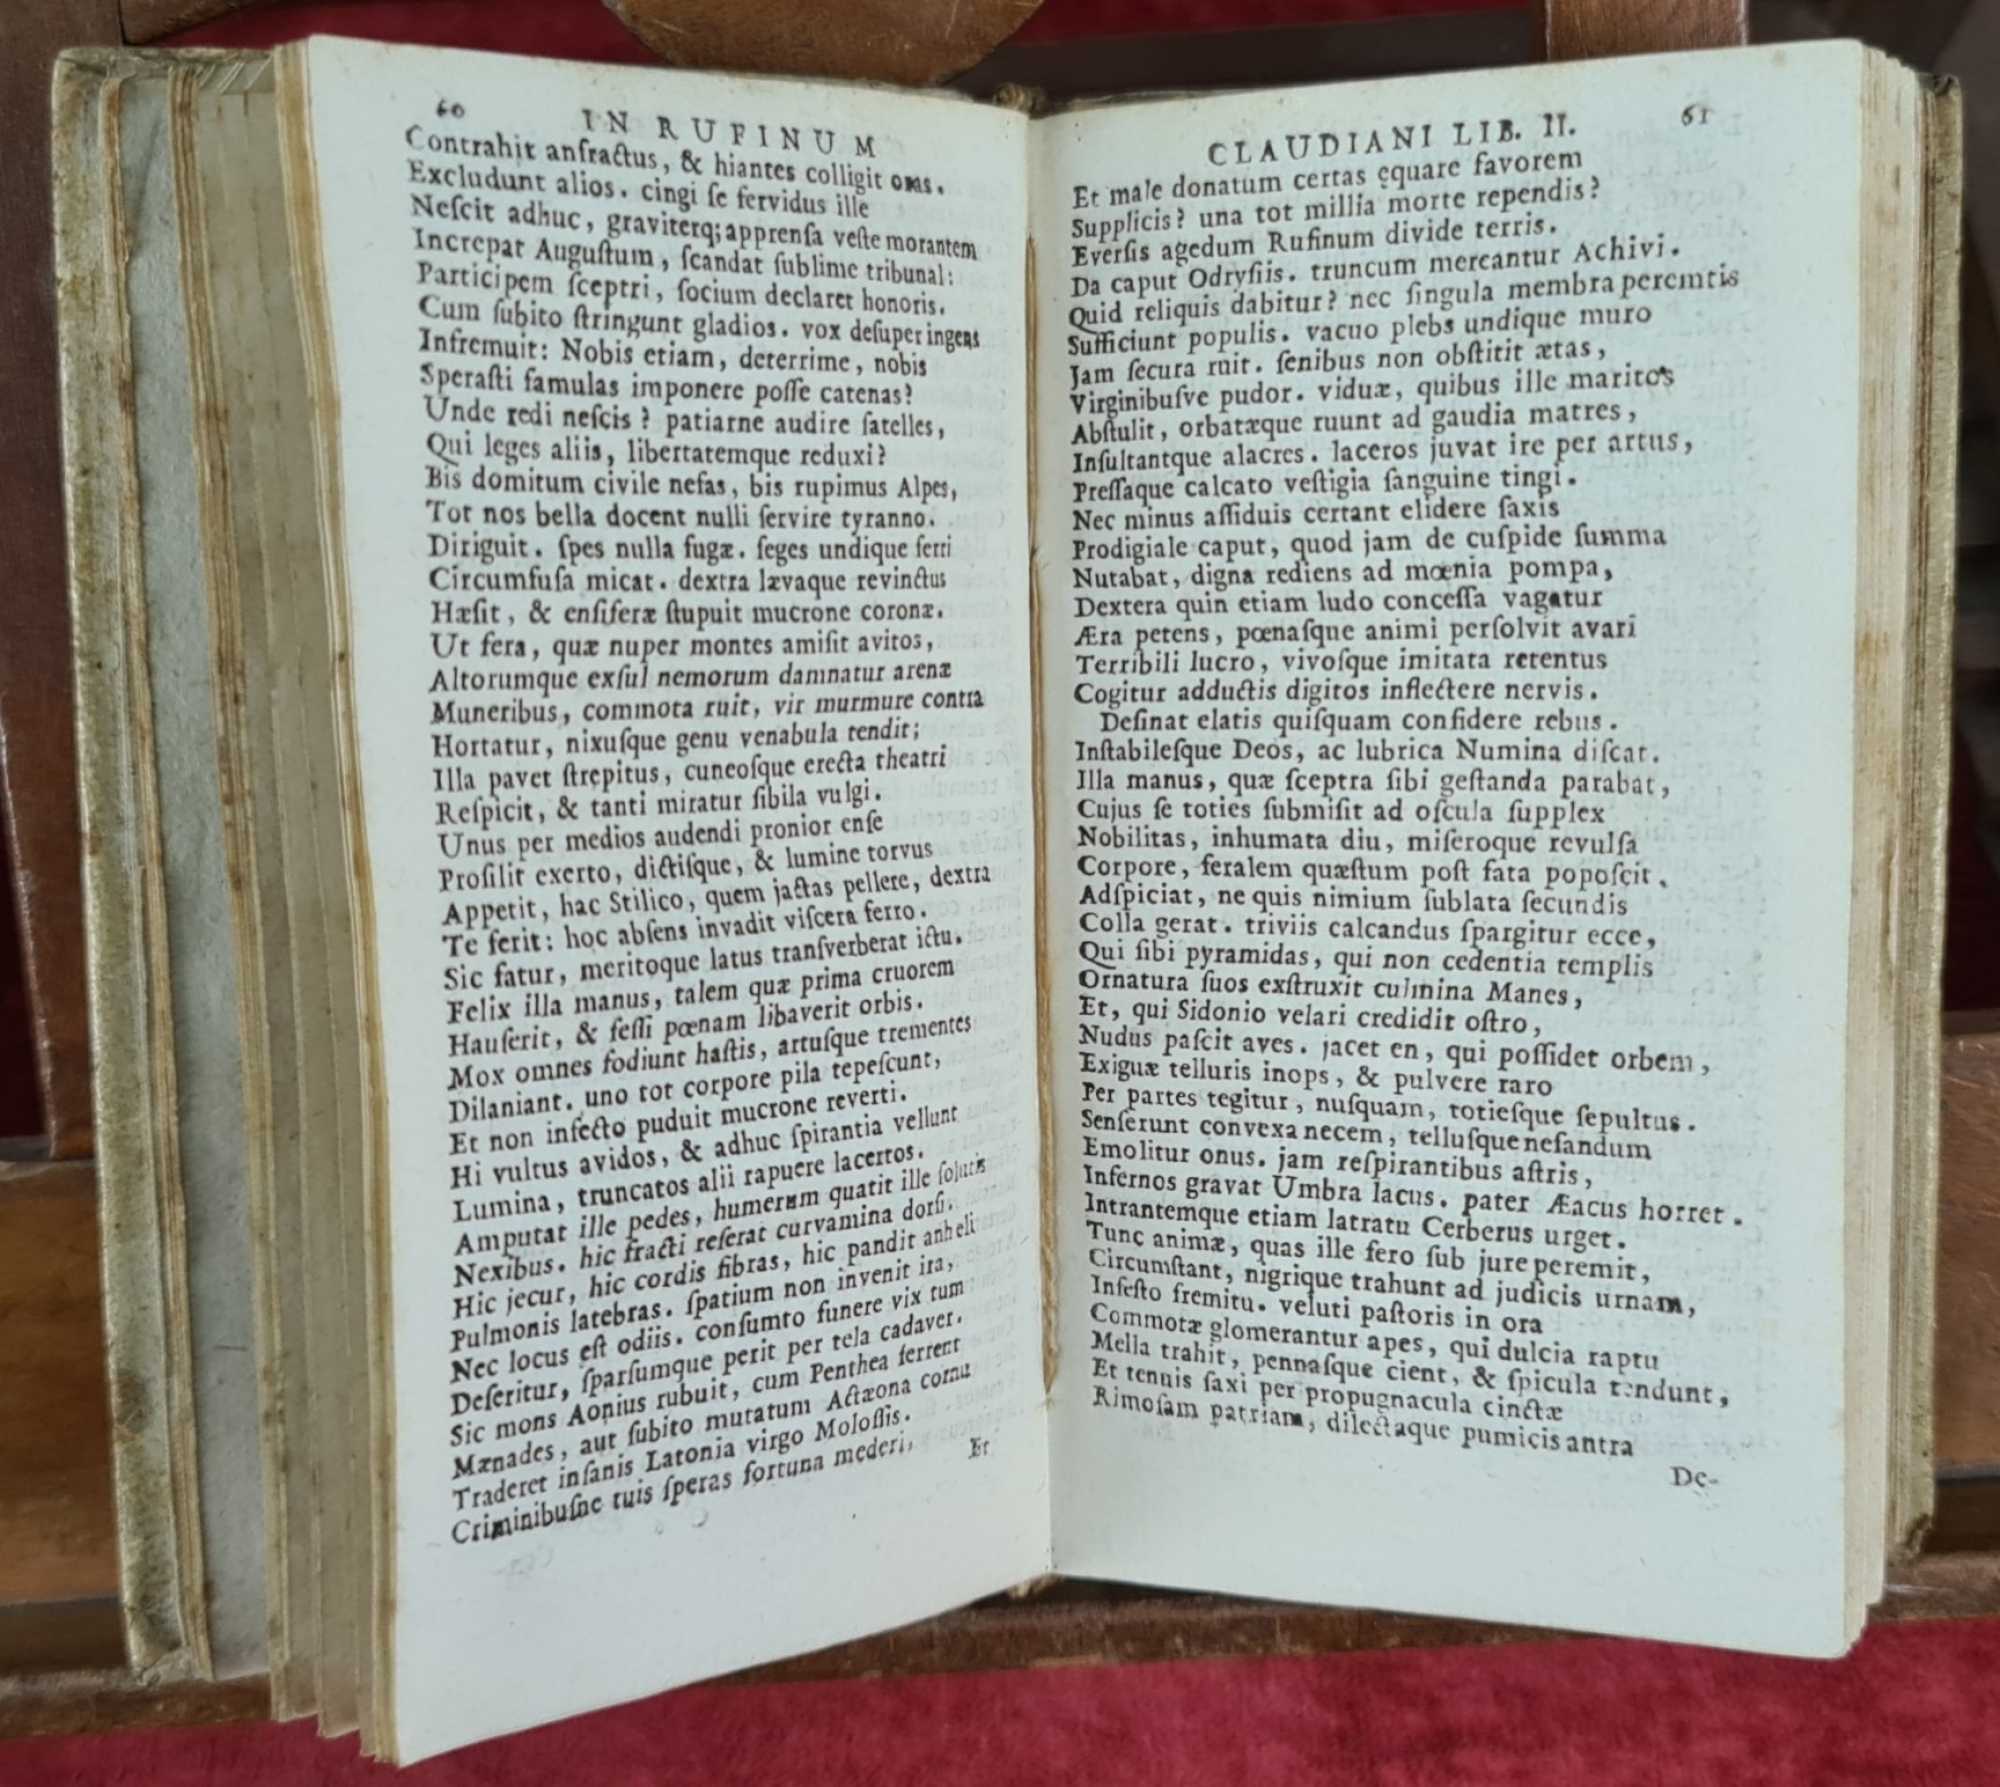 60
IN RUFINUM
Contrahit anfractus, & hiantes colligit oras.
Excludunt alios. cingi ſe fervidus ille
Neſcit adhuc, graviterq; apprenſa veſte morantem
Increpat Auguſtum, ſcandat ſublime tribunal:
Participem ſceptri, ſocium declaret honoris.
Cum ſubito ſtringunt gladios. vox deſuper ingens
Infremuit: Nobis etiam, deterrime, nobis
Speraſti famulas imponere poſſe catenas?
Unde redi neſcis? patiarne audire ſatelles,
Qui leges aliis, libertatemque reduxi?
Bis domitum civile nefas, bis rupimus Alpes,
Tot nos bella docent nulli ſervire tyranno.
Diriguit. ſpes nulla fugæ. ſeges undique ferri
Circumfuſa micat. dextra lævaque revinctus
Hæſit, & enſiferæ ſtupuit mucrone coronæ.
Ut fera, quæ nuper montes amiſit avitos,
Altorumque exſul nemorum damnatur arenæ
Muneribus, commota ruit, vir murmure contra
Hortatur, nixuſque genu venabula tendit;
Illa pavet ſtrepitus, cuneoſque erecta theatri
Reſpicit, & tanti miratur ſibila vulgi.
Unus per medios audendi pronior enſe
Proſilit exerto, dictiſque, & lumine torvus
Appetit, hac Stilico, quem jactas pellere, dextra
Te ferit: hoc abſens invadit viſcera ferro.
Sic fatur, meritoque latus tranſverberat ictu.
Felix illa manus, talem quæ prima cruorem
Hauſerit, & feſſi pœnam libaverit orbis.
Mox omnes fodiunt haſtis, artuſque trementes
Dilaniant. uno tot corpore pila tepeſcunt,
Et non infecto puduit mucrone reverti.
Hi vultus avidos, & adhuc ſpirantia vellunt
Lumina, truncatos alii rapuere lacertos.
Amputat ille pedes, humerum quatit ille ſolutis
Nexibus. hic fracti reſerat curvamina dorſi.
Hic jecur, hic cordis fibras, hic pandit anheli
Pulmonis latebras. ſpatium non invenit ira,
Nec locus eſt odiis. conſumto funere vix tum
Deſeritur, ſparſumque perit per tela cadaver.
Sic mons Aonius rubuit, cum Penthea ferrent
Mænades, aut ſubito mutatum Actæona cornu
Traderet inſanis Latonia virgo Moloſſis.
Criminibuſne tuis ſperas fortuna mederi,
Et
CLAUDIANI LIB. II.
61
Et male donatum certas ęquare favorem
Supplicis? una tot millia morte rependis?
Everſis agedum Rufinum divide terris.
Da caput Odryſiis. truncum mereantur Achivi.
Quid reliquis dabitur? nec ſingula membra peremtis
Sufficiunt populis. vacuo plebs undique muro
Jam ſecura ruit. ſenibus non obſtitit ætas,
Virginibuſve pudor. viduæ, quibus ille maritos
Abſtulit, orbatæque ruunt ad gaudia matres,
Inſultantque alacres. laceros juvat ire per artus,
Preſſaque calcato veſtigia ſanguine tingi.
Nec minus aſſiduis certant elidere ſaxis
Prodigiale caput, quod jam de cuſpide ſumma
Nutabat, digna rediens ad mœnia pompa,
Dextera quin etiam ludo conceſſa vagatur
Æra petens, pœnaſque animi perſolvit avari
Terribili lucro, vivoſque imitata retentus
Cogitur adductis digitos inflectere nervis.
Deſinat elatis quiſquam confidere rebus.
Inſtabileſque Deos, ac lubrica Numina diſcat.
Illa manus, quæ ſceptra ſibi geſtanda parabat,
Cujus ſe toties ſubmiſit ad oſcula ſupplex
Nobilitas, inhumata diu, miſeroque revulſa
Corpore, feralem quæſtum poſt fata popoſcit.
Adſpiciat, ne quis nimium ſublata ſecundis
Colla gerat. triviis calcandus ſpargitur ecce,
Qui ſibi pyramidas, qui non cedentia templis
Ornatura ſuos exſtruxit culmina Manes,
Et, qui Sidonio velari credidit oſtro,
Nudus paſcit aves. jacet en, qui poſſidet orbem,
Exiguæ telluris inops, & pulvere raro
Per partes tegitur, nuſquam, totieſque ſepultus.
Senſerunt convexa necem, telluſque nefandum
Emolitur onus. jam reſpirantibus aſtris,
Infernos gravat Umbra lacus. pater Æacus horret.
Intrantemque etiam latratu Cerberus urget.
Tunc animæ, quas ille fero ſub jure peremit,
Circumſtant, nigrique trahunt ad judicis urnam,
Infeſto fremitu. veluti paſtoris in ora
Commotæ glomerantur apes, qui dulcia raptu
Mella trahit, pennaſque cient, & ſpicula tendunt,
Et tenuis ſaxi per propugnacula cinctæ
Rimoſam patriam, dilectaque pumicis antra
De-